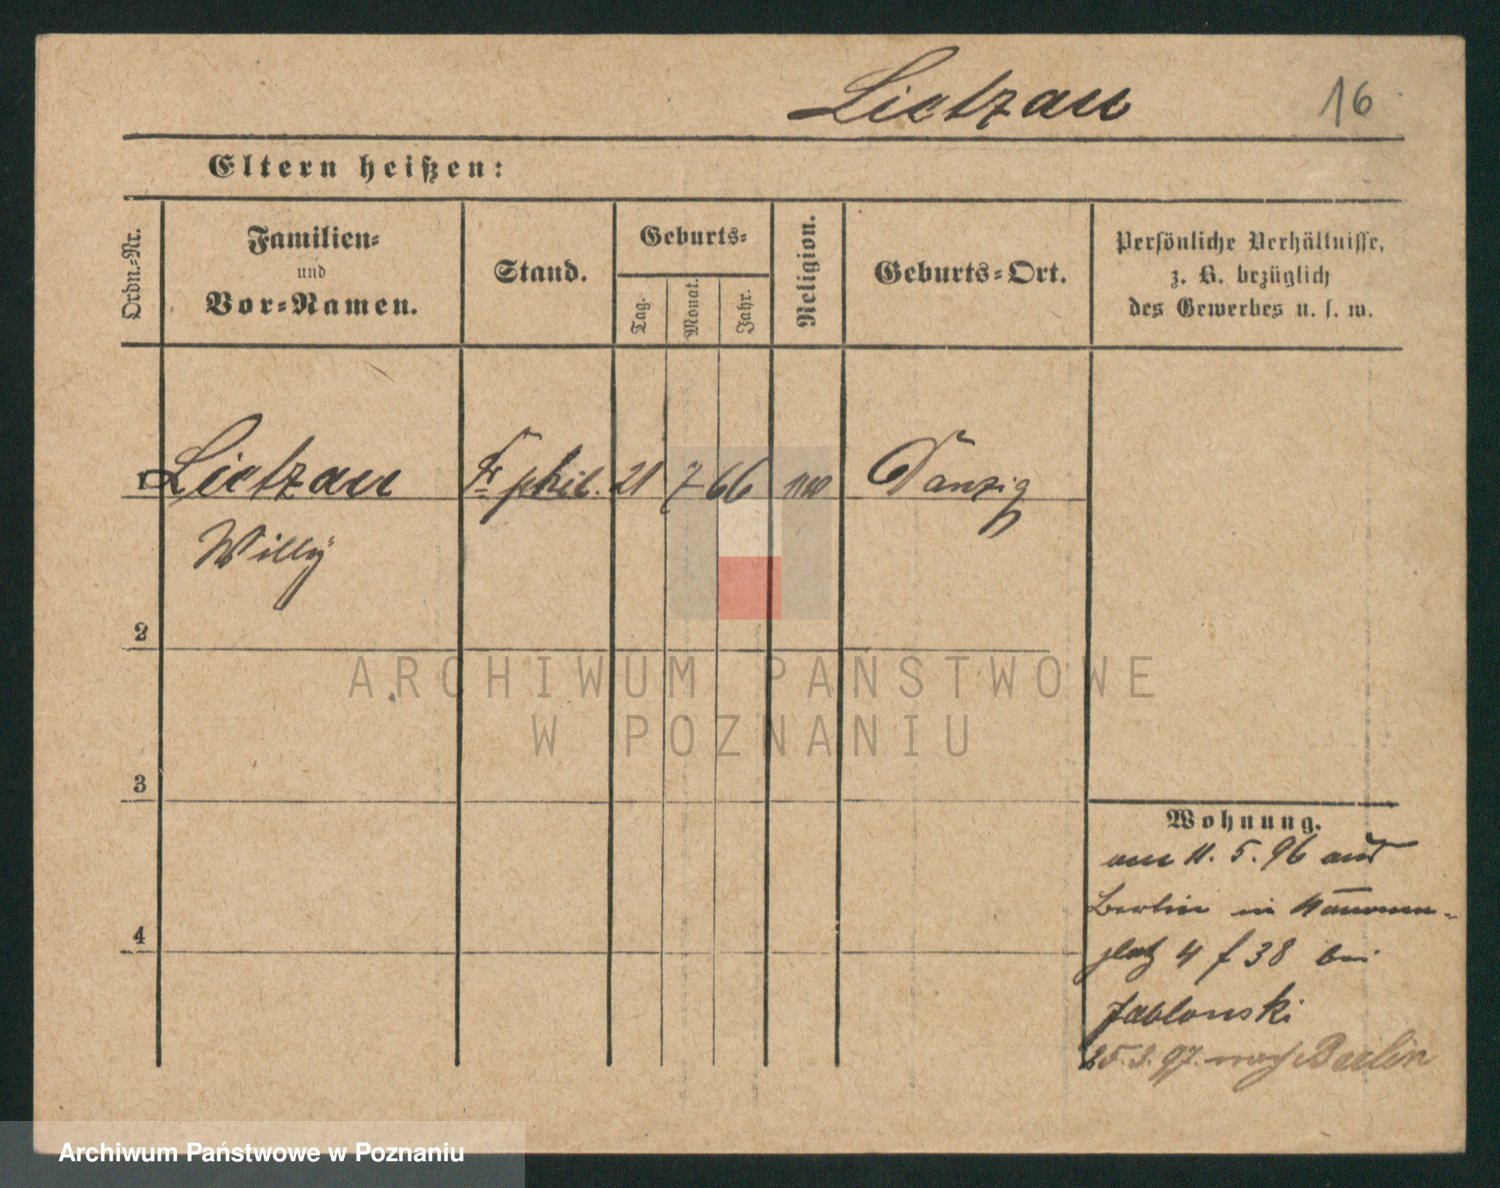 Lietzau 16
Eltern heißen:
Ordn.-Nr.
Familien-
und
Vor-Namen.
Stand.
Geburts-
Tag.
Monat.
Jahr.
Religion.
Geburts-Ort.
Persönliche Verhältnisse,
z. B. bezüglich
des Gewerbes u. s. w.
1 Lietzau Dr phil. 21 7 66 Danzig
Willy
2
3
4
ARCHIWUM PAŃSTWOWE
W POZNANIU
Wohnung.
am 11. 5. 96 aus
Berlin in
platz 4 f 38 bei
Jablonski
25. 3. 97. nach Berlin
Archiwum Państwowe w Poznaniu